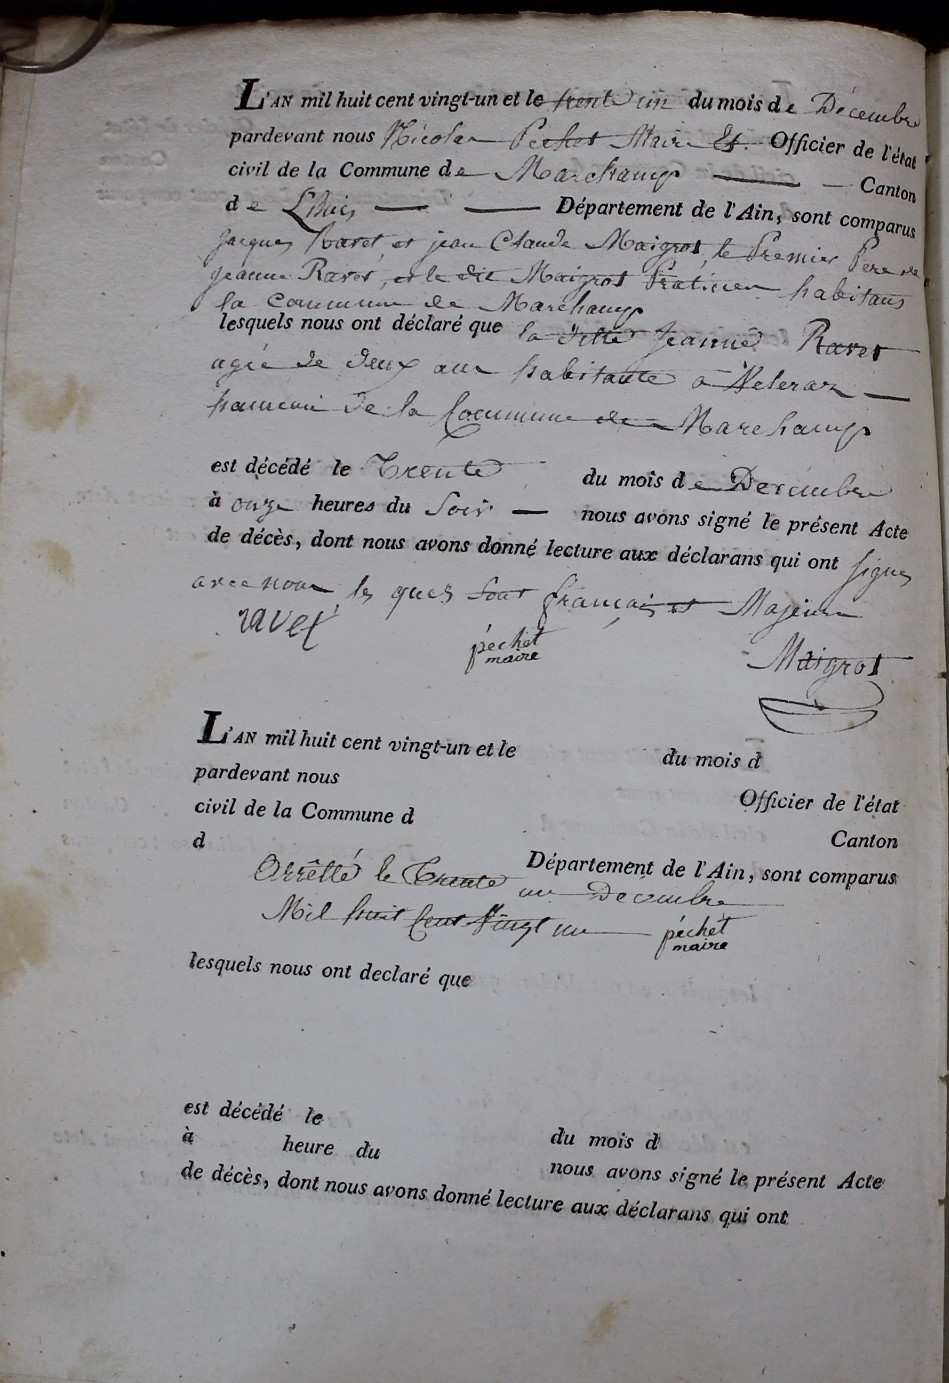 L'AN mil huit cent vingt-un et le trente un du mois de Décembre
pardevant nous Nicolas Pechet Maire Et Officier de l'état
civil de la Commune de Marchamp Canton
de Lhuis Département de l'Ain, sont comparus
Jacques Ravet et jean Claude Maigrot, le Premier Pere de
jeanne Ravet, et le dit Maigrot Praticien habitans
la commune de Marchamp
lesquels nous ont déclaré que la ditte Jeanne Ravet
agée de deux ans habitante à
hameau de la Commune de Marchamp
est décédé le Trente du mois de Decembre
à onze heures du Soir nous avons signé le présent Acte
de décès, dont nous avons donné lecture aux déclarans qui ont signés
avec nous les quels sont français et Majeurs
ravet
péchet
maire
Maigrot
L'AN mil huit cent vingt-un et le du mois d
pardevant nous Officier de l'état
civil de la Commune d Canton
d Département de l'Ain, sont comparus
Arrêtté le Trente un Décembre
Mil huit Cent Vingt un
péchet
maire
lesquels nous ont declaré que
est décédé le du mois d
à heure du nous avons signé le présent Acte
de décès, dont nous avons donné lecture aux déclarans qui ont